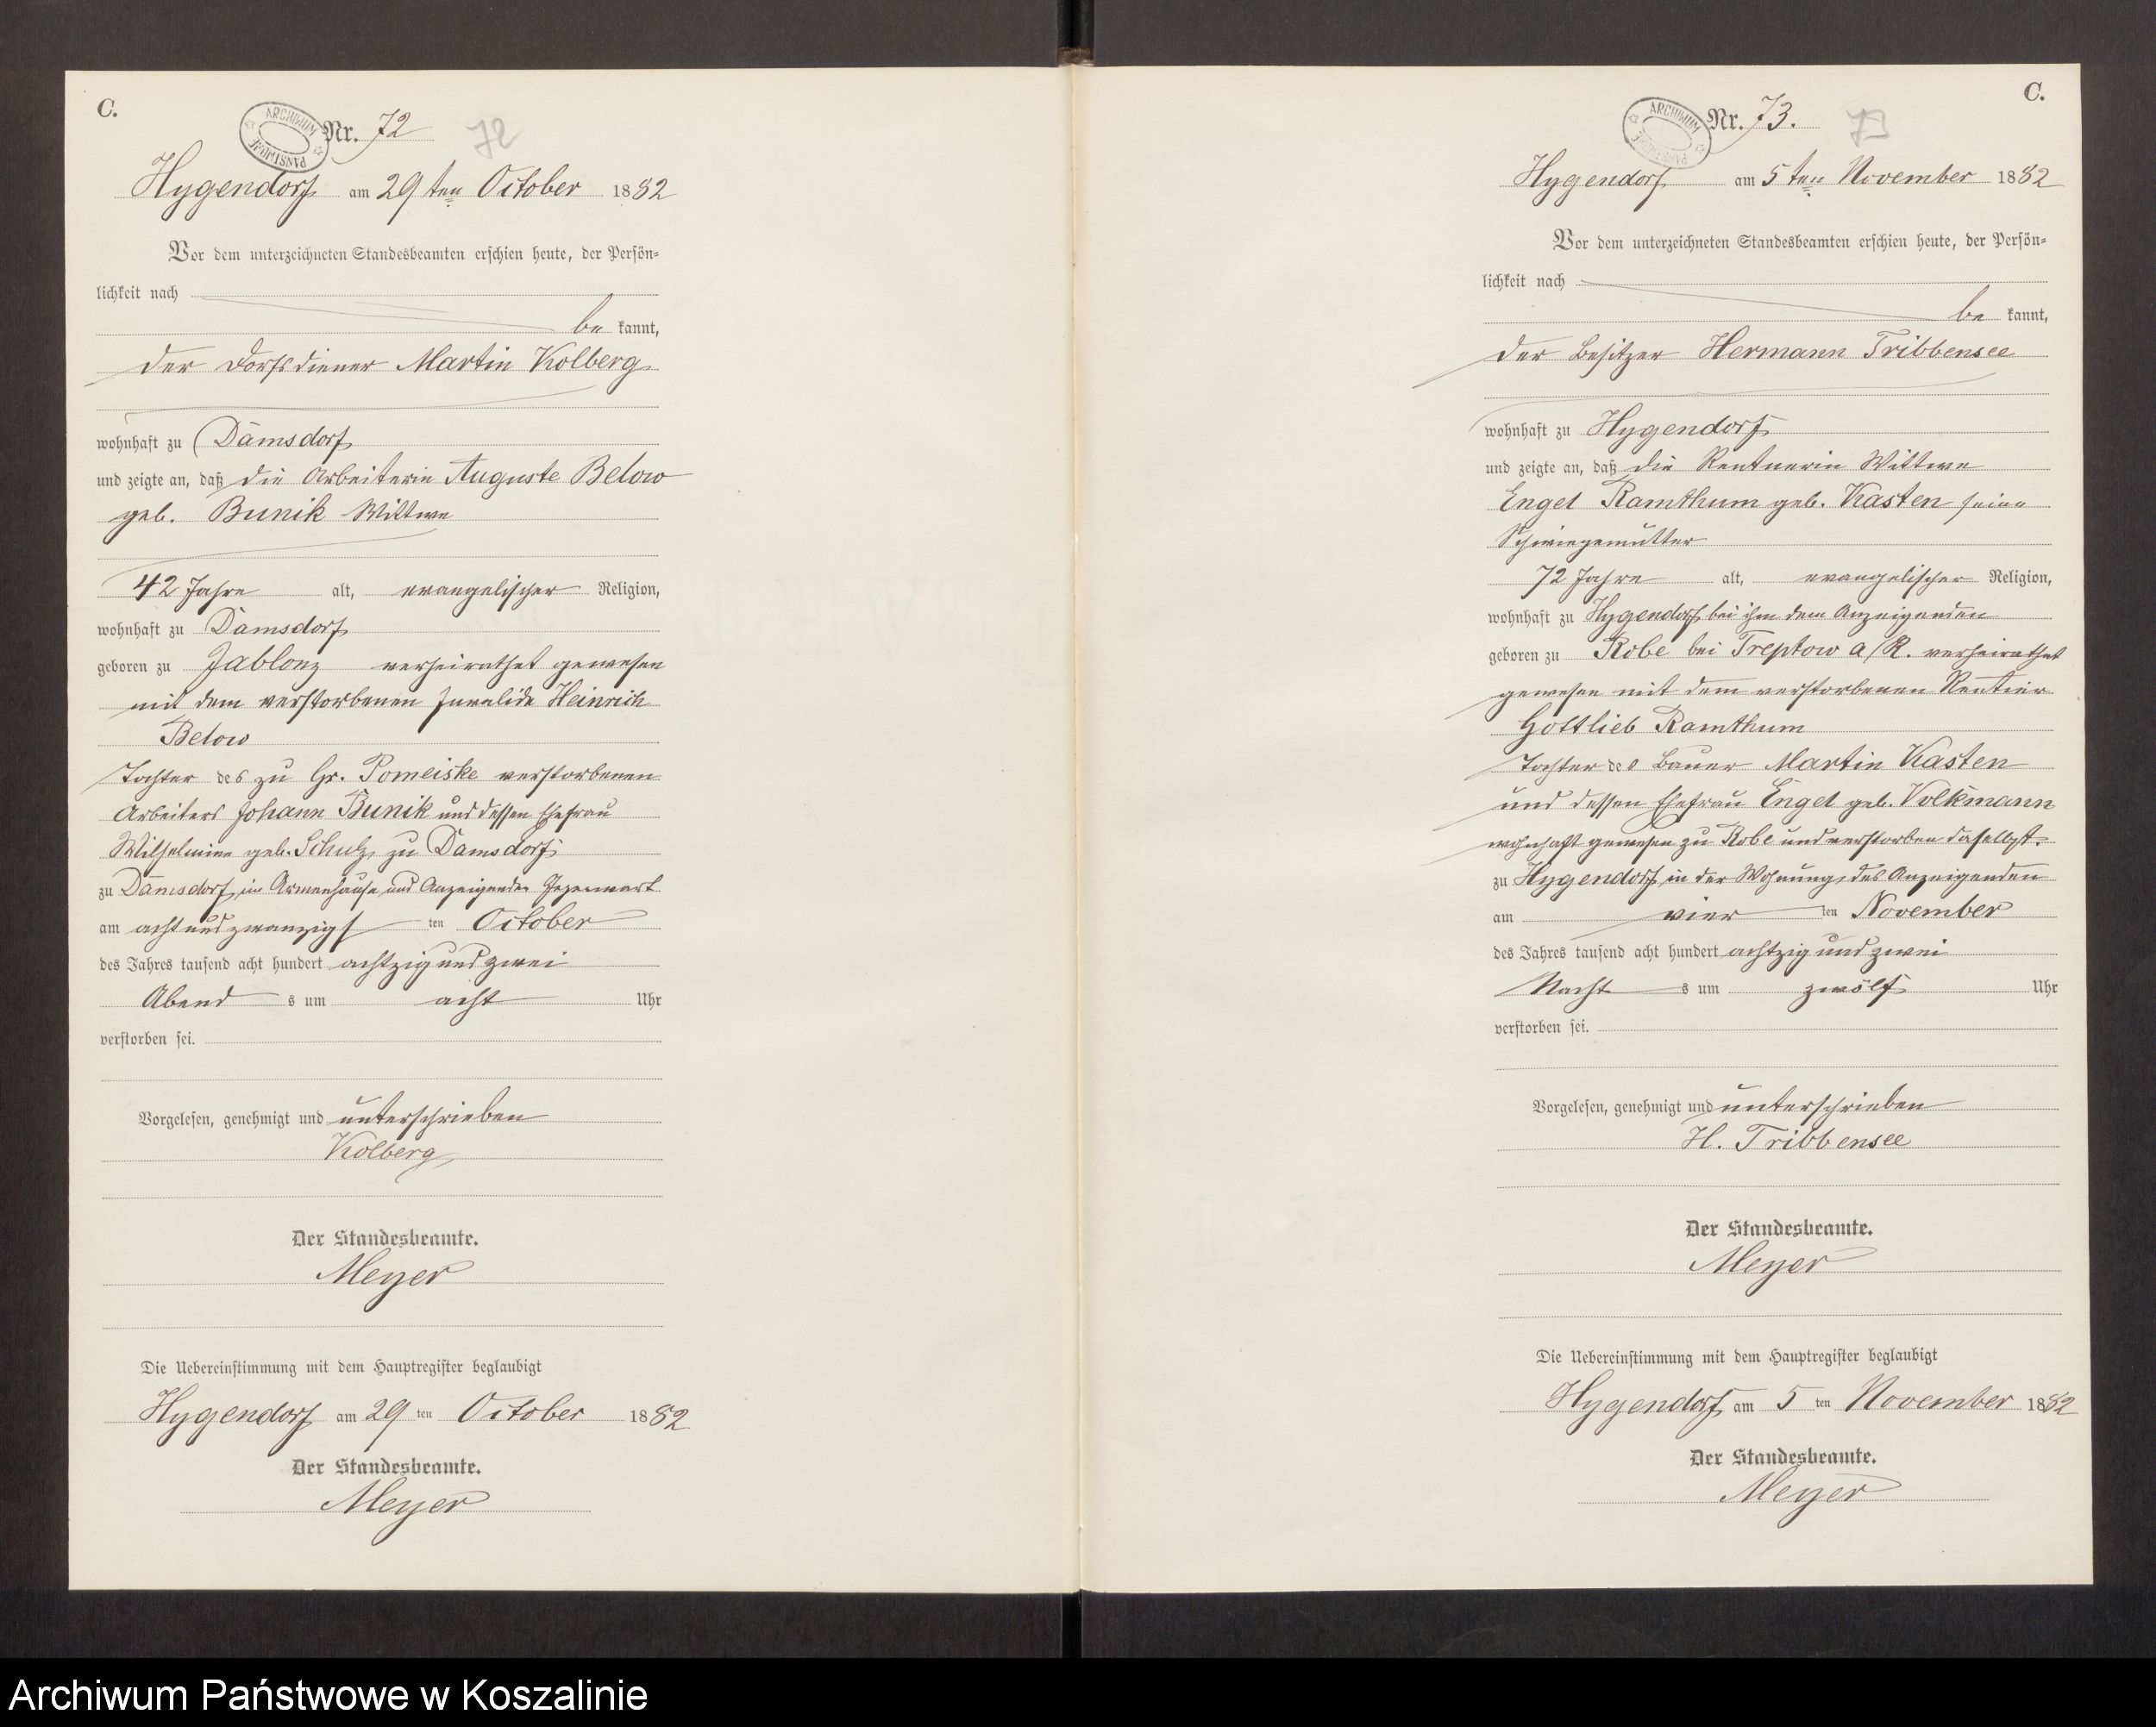 C.
ARCHIWUM PAŃSTWOWE
Nr. 72
72
Hygendorf am 29ten October 1882
Vor dem unterzeichneten Standesbeamten erschien heute, der Persön-
lichkeit nach
be kannt,
der Dorfsdiener Martin Kolberg
wohnhaft zu Damsdorf
und zeigte an, daß die Arbeiterin Auguste Below
geb. Bunik Wittwe
42 Jahre alt, evangelischer Religion,
wohnhaft zu Damsdorf
geboren zu Jablonz verheirathet gewesen
mit dem verstorbenen Invalide Heinrich
Below
Tochter des zu Gr. Pomeiske verstorbenen
Arbeiters Johann Bunik und dessen Ehefrau
Wilhelmine geb. Schulz, zu Damsdorf
zu Damsdorf, im Armenhause und Anzeigender Gegenwart
am achtundzwanzigs ten October
des Jahres tausend acht hundert achtzig und zwei
Abend s um acht Uhr
verstorben sei.
Vorgelesen, genehmigt und unterschrieben
Kolberg
Der Standesbeamte.
Meyer
Die Uebereinstimmung mit dem Hauptregister beglaubigt
Hygendorf am 29 ten October 1882
Der Standesbeamte.
Meyer
C.
ARCHIWUM PAŃSTWOWE
Nr. 73.
73
Hygendorf am 5ten November 1882
Vor dem unterzeichneten Standesbeamten erschien heute, der Persön-
lichkeit nach
be kannt,
der Besitzer Hermann Tribbensee
wohnhaft zu Hygendorf
und zeigte an, daß die Rentnerin Wittwe
Engel Ramthum geb. Kasten seine
Schwiegemutter
72 Jahre alt, evangelischer Religion,
wohnhaft zu Hygendorf bei ihm dem Anzeigenden
geboren zu Robe bei Treptow a/R. verheirathet
gewesen mit dem verstorbenen Rentier
Gottlieb Ramthum
Tochter des Bauer Martin Kasten
und dessen Ehefrau Engel geb. Volkmann
wohnhaft gewesen zu Robe und verstorben daselbst.
zu Hygendorf in der Wohnung, des Anzeigenden
am vier ten November
des Jahres tausend acht hundert achtzig und zwei
Nacht s um zwölf Uhr
verstorben sei.
Vorgelesen, genehmigt und unterschrieben
H. Tribbensee
Der Standesbeamte.
Meyer
Die Uebereinstimmung mit dem Hauptregister beglaubigt
Hygendorf am 5 ten November 1882
Der Standesbeamte.
Meyer
Archiwum Państwowe w Koszalinie